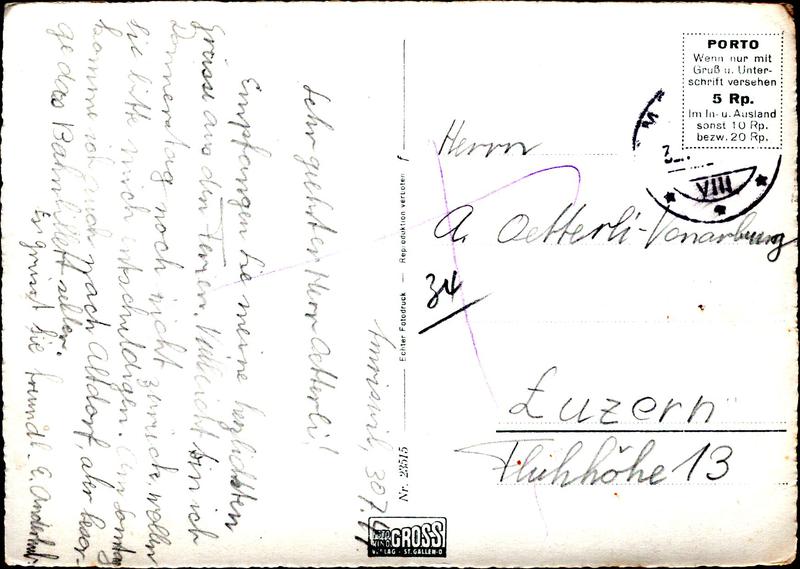 Sehr geehrter Herr Oetterli!
Empfangen Sie meine herzlichsten
Grüsse aus den Ferien. Vielleicht bin ich
Donnerstag noch nicht zurück, wollen
Sie bitte mich entschuldigen. Am Sonntag
komme ich auch nach Altdorf, aber besor-
ge das Bahnbillett selber.
Es grüsst Sie freundl. E.
30.7.
Echter Fotodruck — Reproduktion verboten
Nr. 23515
GROSS
VERLAG · ST. GALLEN-O
PORTO
Wenn nur mit
Gruß u. Unter-
schrift versehen
5 Rp.
Im In- u. Ausland
sonst 10 Rp.
bezw. 20 Rp.
VIII
Herrn
A. Oetterli-Vonarburg
34
Luzern
Fluhhöhe 13